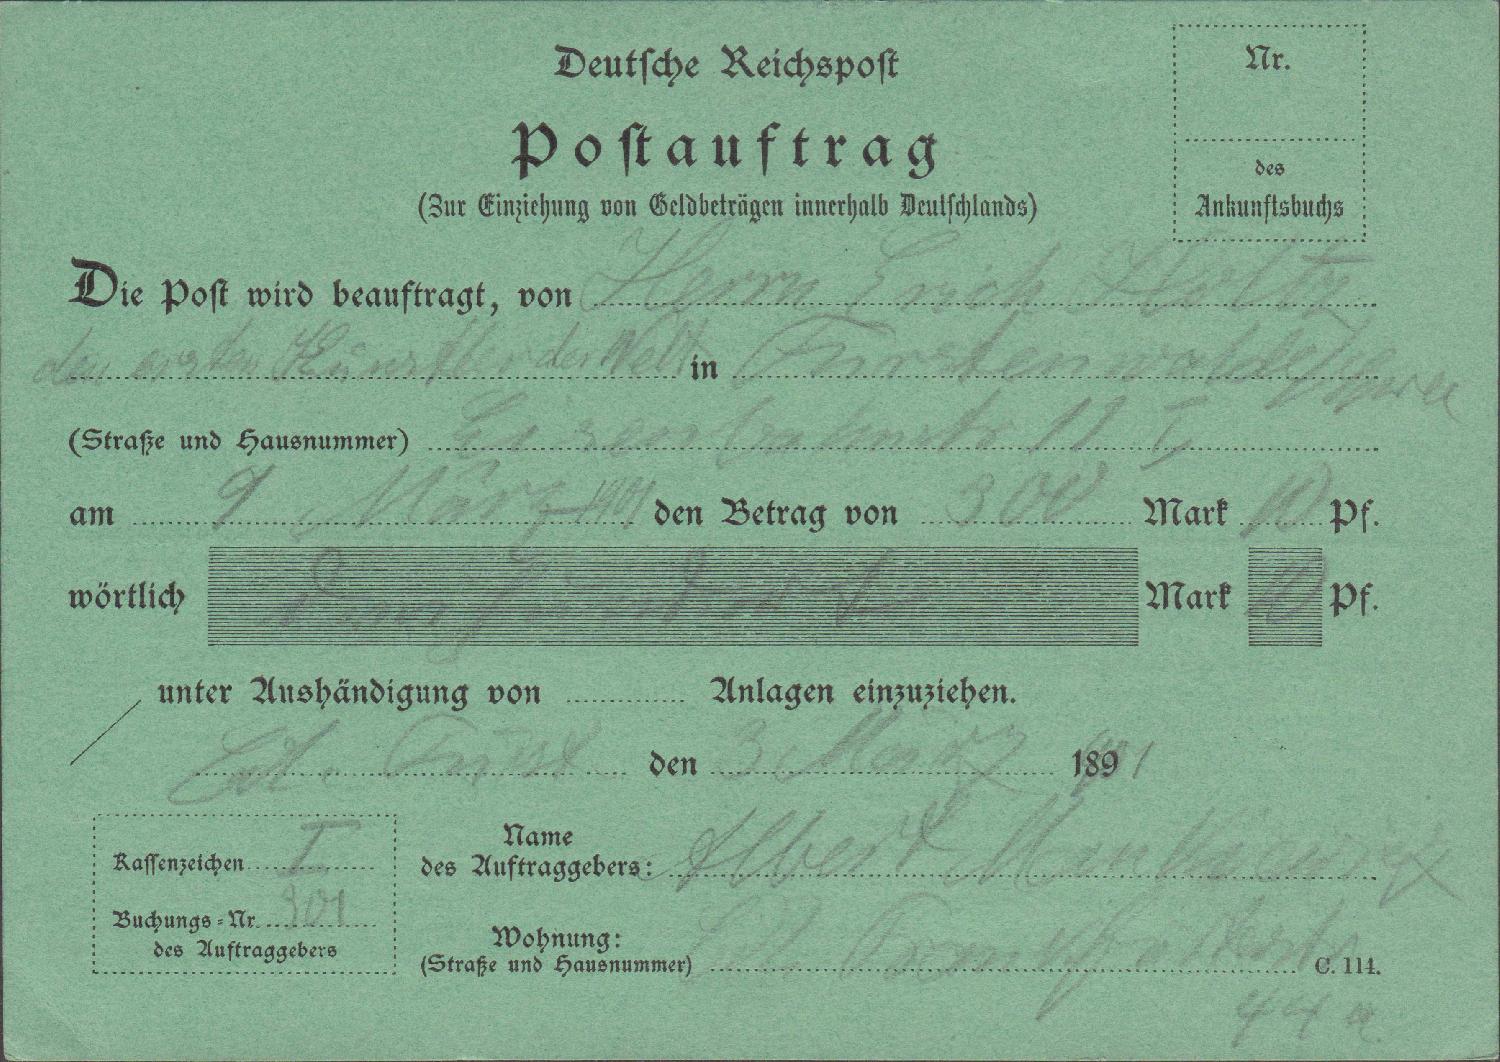 Deutsche Reichspost
Nr.
Postauftrag
des
(Zur Einziehung von Geldbeträgen innerhalb Deutschlands)
Ankunftsbuchs
Die Post wird beauftragt, von Herrn Erich
den ersten Künstler der Welt in Fürstenwalde/Spree
(Straße und Hausnummer) Eisenbahnstr 11 I
am 9 März 1901 den Betrag von 300 Mark 10 Pf.
wörtlich Mark 10 Pf.
unter Aushändigung von Anlagen einzuziehen.
den 3 März 1891
Kassenzeichen I
Name
des Auftraggebers: Albert
Buchungs-Nr. 301
des Auftraggebers
Wohnung:
(Straße und Hausnummer) C. 114.
44 a